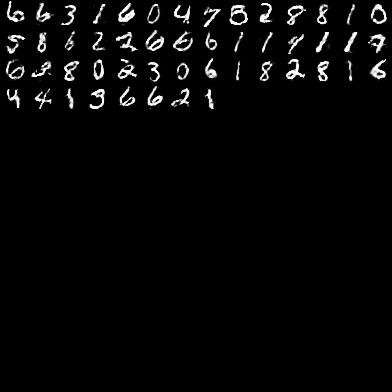 6 6 3 1 6 0 4 7 8 2 8 8 1 0
5 8 6 2 2 6 6 6 1 1 9 1 1 7
6 8 0 2 3 0 6 1 8 2 8 1 6
4 4 1 3 6 6 2 1